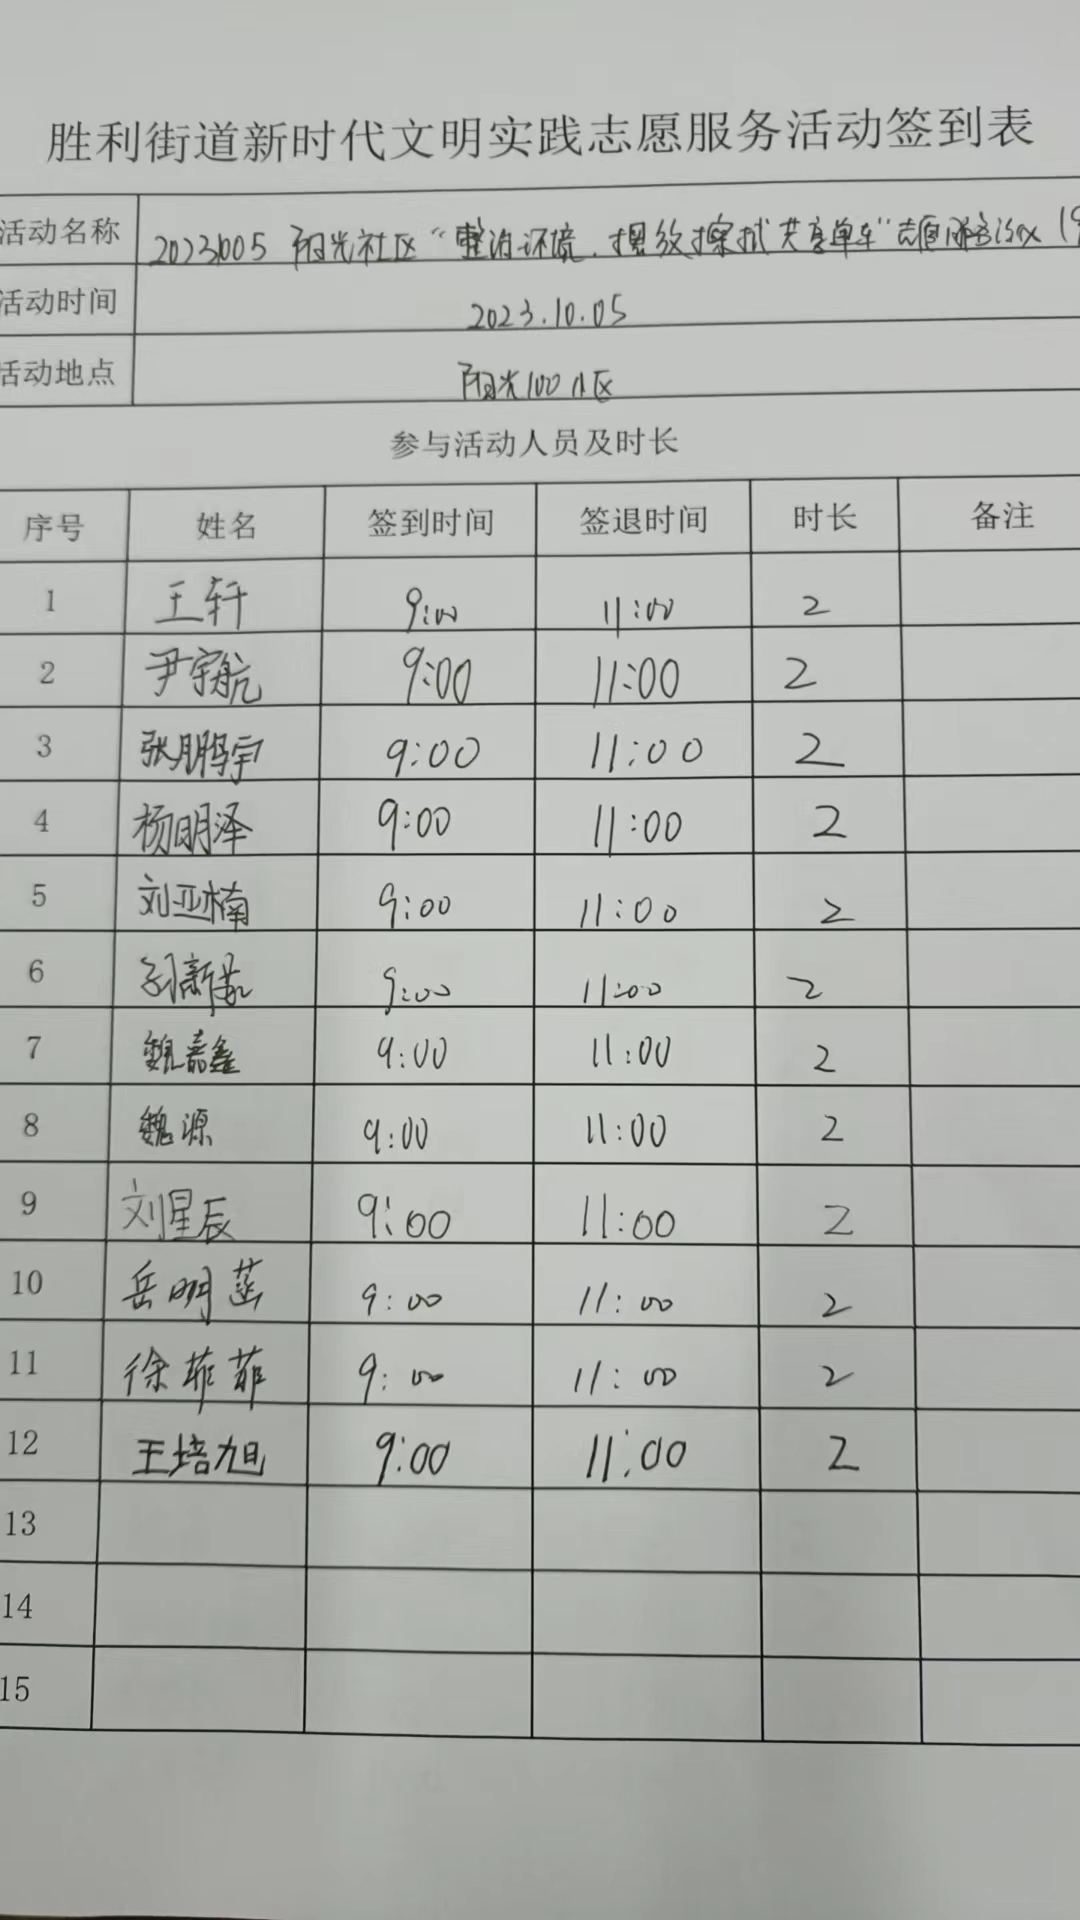 胜利街道新时代文明实践志愿服务活动签到表
活动名称 20231005 阳光社区“整治环境、摆放擦拭共享单车”志愿服务活动
活动时间 2023.10.05
活动地点 阳光100小区
参与活动人员及时长
序号 姓名 签到时间 签退时间 时长 备注
1 王轩 9:00 11:00 2
2 尹宇航 9:00 11:00 2
3 张鹏宇 9:00 11:00 2
4 杨明泽 9:00 11:00 2
5 刘亚楠 9:00 11:00 2
6 9:00 11:00 2
7 魏嘉鑫 9:00 11:00 2
8 魏源 9:00 11:00 2
9 刘星辰 9:00 11:00 2
10 岳明菡 9:00 11:00 2
11 徐菲菲 9:00 11:00 2
12 王培旭 9:00 11:00 2
13
14
15